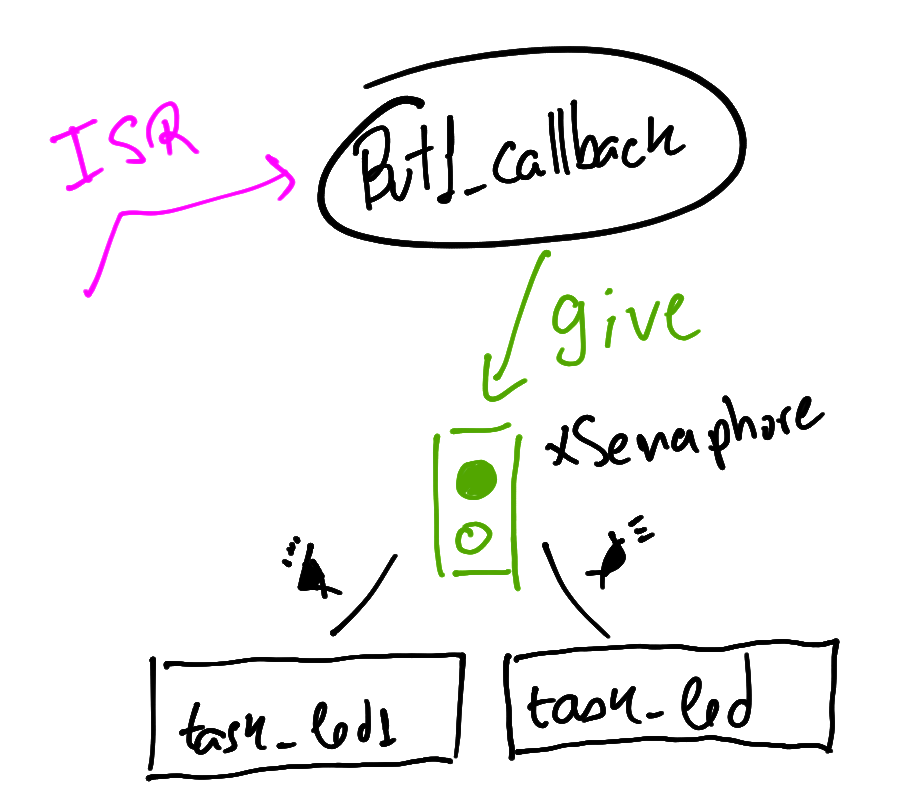 ISR
But1_callback
give
xSemaphore
task_led1
task_led